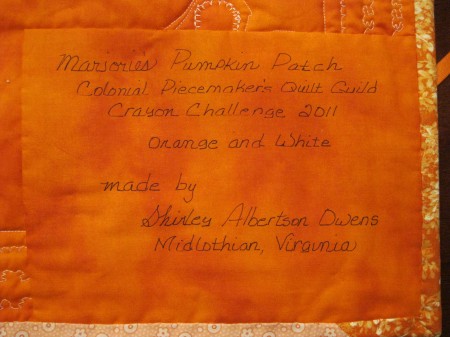 Marjorie's Pumpkin Patch
Colonial Piecemaker's Quilt Guild
Crayon Challenge 2011
Orange and White
made by
Shirley Albertson Owens
Midlothian, Virginia